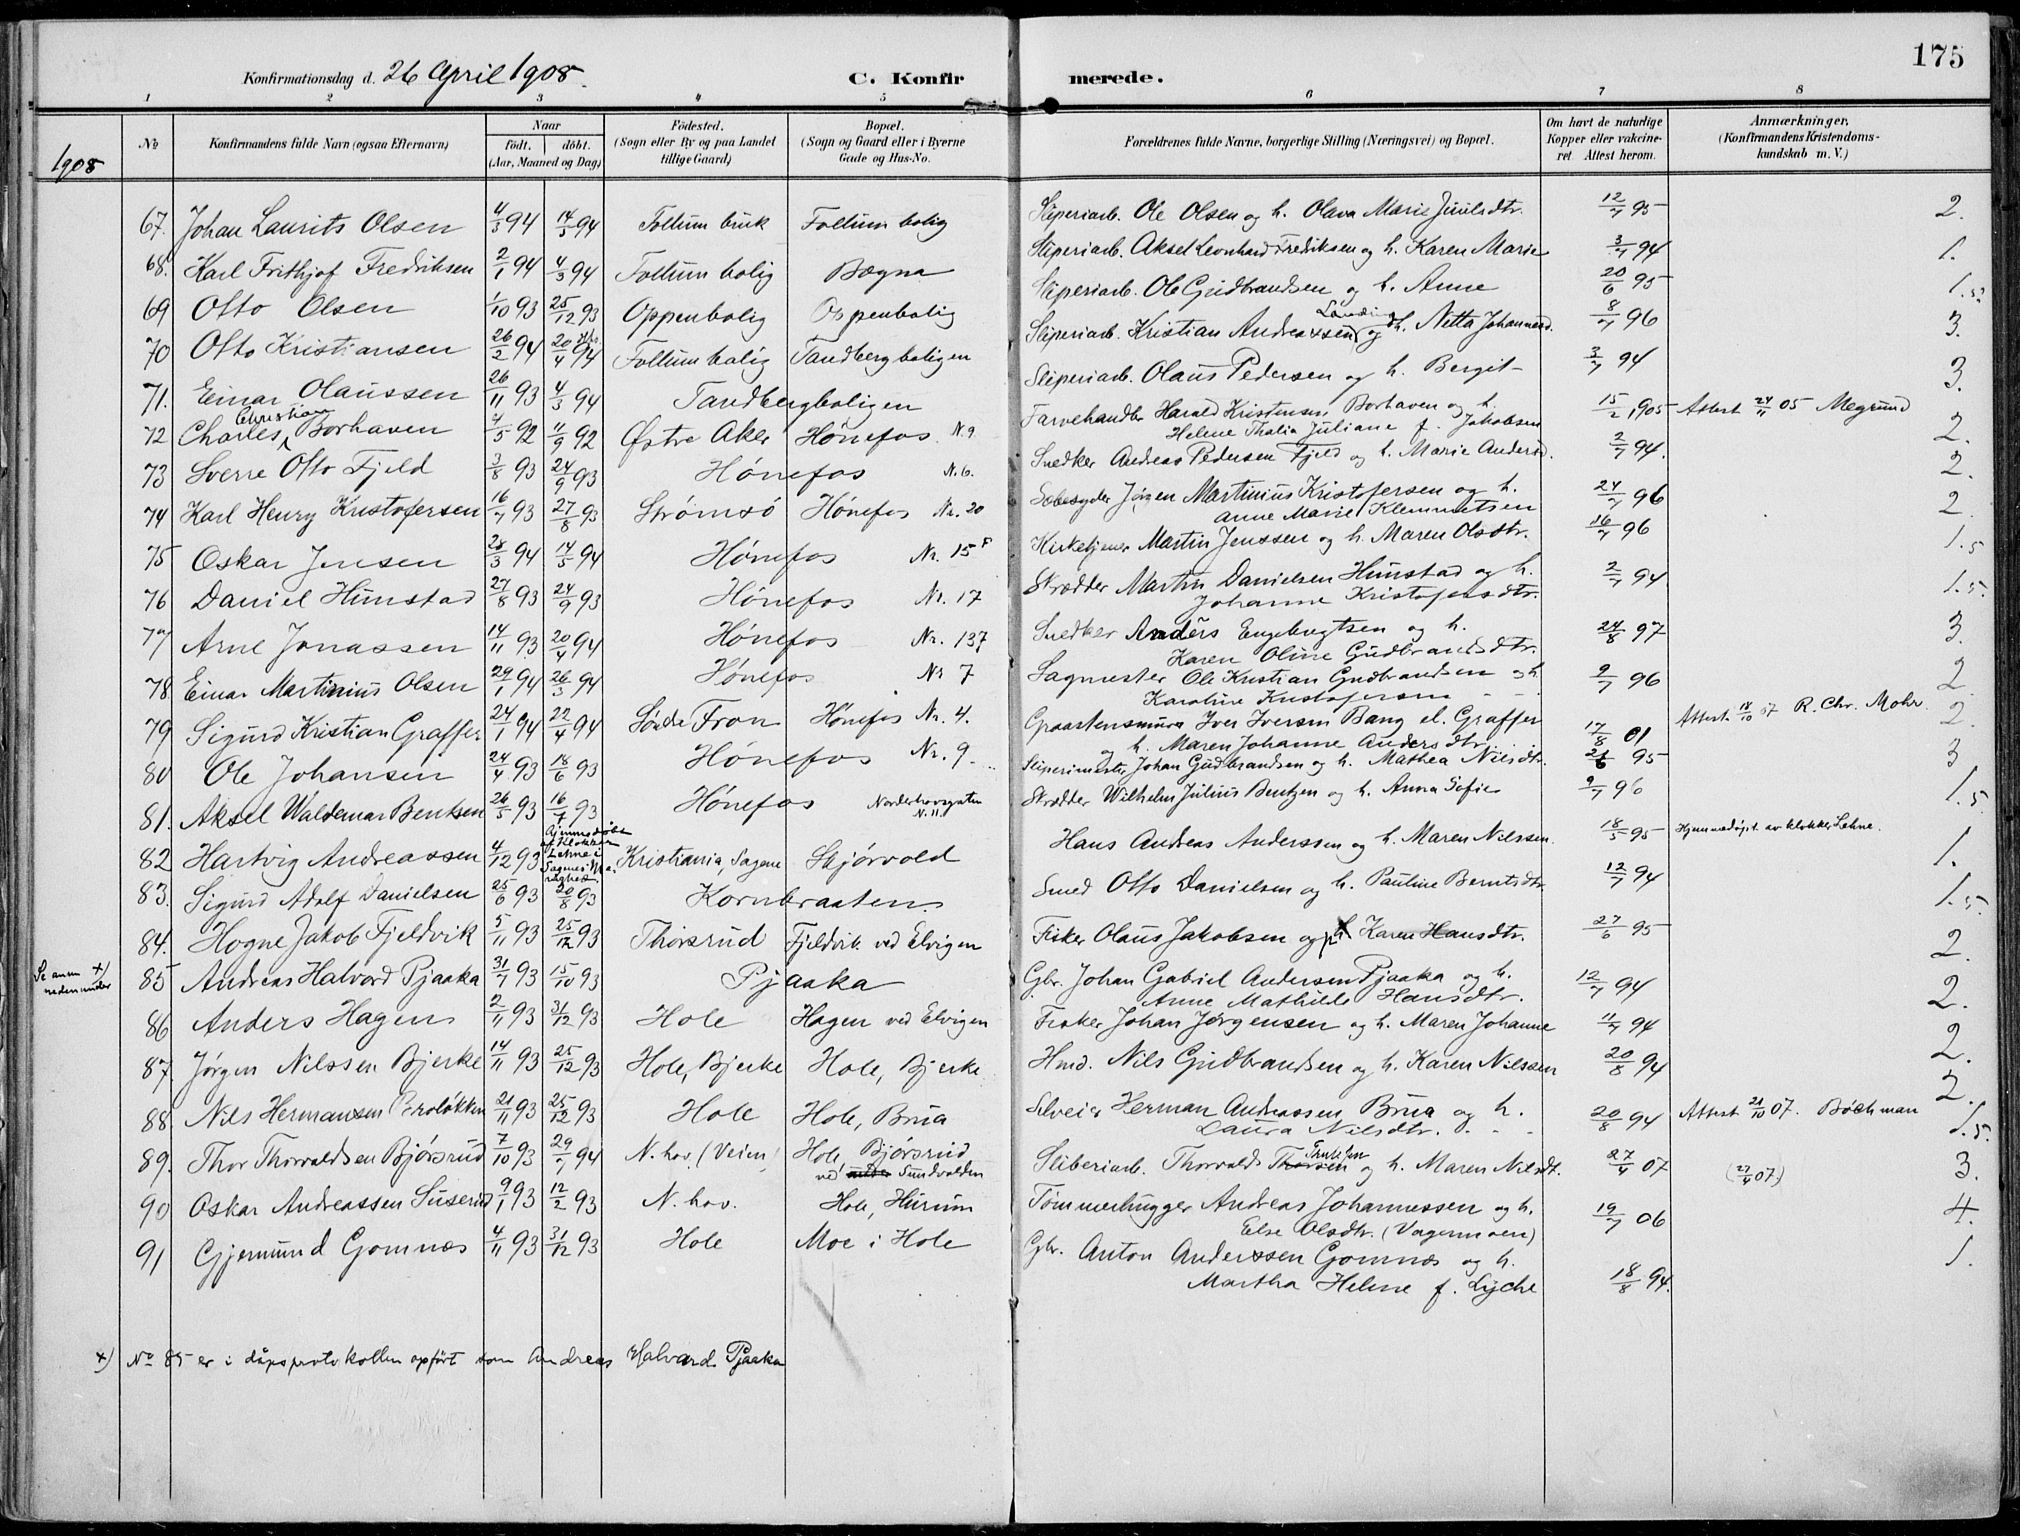 175
Konfirmationsdag d. 26 April 1908. C. Konfirmerede.
1 2 3 4 5 6 7 8
No Konfirmandens fulde Navn (ogsaa Efternavn) Naar Födested. Bopæl. Forældrenes fulde Navne, borgerlige Stilling (Næringsvei) og Bopæl. Om havt de naturlige Anmærkninger.
födt. döbt. (Sogn eller By og paa Landet (Sogn og Gaard eller i Byerne Kopper eller vakcine- (Konfirmandens Kristendoms-
(Aar, Maaned og Dag) tillige Gaard) Gade og Hus-No. ret Attest herom. kundskab m. V.)
1908
67. Johan Laurits Olsen 4/3 94 14/5 94 Follum bruk Follum bolig Sliperiarb. Ole Olsen og h. Olava Marie Juulsdtr. 12/7 95 2.
68. Karl Frithjof Fredriksen 2/1 94 4/3 94 Follum bolig Bægna Sliperiarb. Aksel Leonhard Fredriksen og h. Karen Marie 3/7 94 1.
69 Otto Olsen 1/10 93 25/12 93 Oppenbolig Oppenbolig Sliperiarb. Ole Gudbrandsen og h. Anne 20/6 95 1.5?
70 Otto Kristiansen 26/2 94 20/4 94 Follum bolig Tandbergboligen Sliperiarb. Kristian Andreassen og h. Netta Johannesd. 8/7 96 3.
71. Einar Olaussen 26/11 93 4/3 94 Tandbergboligen Sliperiarb. Olaus Pedersen og h. Bergit 3/7 94 3.
72 Charles Christian Borhaven 7/5 92 11/9 92 Østre Aker Hönefos N. 9 Farvehandler Harald Kristensen Borhaven og h. 15/2 1905 Attest 24/11 05 Megrund 2.
Helene Thalia Juliane f. Jakobsen
73 Sverre Otto Fjeld 3/8 93 24/9 93 Hönefos N. 6. Snedker Andreas Pedersen Fjeld og h. Marie Andersd. 2/7 94. 2.
74 Karl Henry Kristofersen 16/7 93 27/8 93 Strömsö Hönefos Nr. 20 Jörgen Martinius Kristofersen og h. 24/7 96 2.
Anne Marie Klemmetsen
75 Oskar Jensen 28/3 94 14/5 94 Hönefos Nr. 15 F Kirketjener Martin Jenssen og h. Maren Olsdtr. 16/7 96 1.5
76 Daniel Hunstad 27/8 93 24/9 93 Hönefos Nr. 17 Skrædder Martin Danielsen Hunstad og h. 2/7 94. 1.5.
Johanne Kristofersdtr.
77 Arne Jonassen 14/11 93 20/4 94 Hönefos Nr. 137 Snedker Anders Engebregtsen og h. 24/8 97 3.
Karen Oline Gudbrandsdtr.
78. Einar Martinius Olsen 29/1 94 26/3 94 Hönefos Nr 7 Sagmester Ole Kristian Gudbrandsen og h. 2/7 96 2.
Karoline Kristofersen
79 Sigurd Kristian Graffer 24/1 94 22/4 94 Söndre Fron Hönefos Nr. 4. Iver Iversen Bang el. Graffer 17/8 01 Attest 18/10 07 R. Chr. Mohr. 2.
og h. Maren Johanne Andersdtr.
80 Ole Johansen 24/4 93 18/6 93 Hönefos Nr. 9. Sliperimester Johan Gudbrandsen og h. Mathea Nilsdtr. 95 3
81. Aksel Waldemar Bentzen 26/5 93 16/7 93 Hönefos Norderhovsgaten N. 11 Skrædder Wilhelm Julius Bentzen og h. Anna Sofie 2/7 96 1.5
82 Hartvig Andreassen 4/12 93 Hjemmedøbt af klokker Lehne i Kristiania, Sagene Skjörvold Hans Andreas Anderssen og h. Maren Nilssen. 18/5 95 Hjemmedøpt av klokker Lehne. 1.
83. Sigurd Adolf Danielsen 25/6 93 20/8 93 Kornbraaten Smed Otto Danielsen og h. Pauline Berntsdtr. 12/7 94 1.5.
84. Hogne Jakob Fjeldvik 5/11 93 25/12 93 Thorsrud Fjeldvik ved Elvigen Fisker Olaus Jakobsen og h. Karen Hansdtr. 27/6 95 2.
Se anm x) nedenunder 85 Andreas Halvord Pjaaka 31/7 93 15/10 93 Pjaaka Gbr. Johan Gabriel Andersen Pjaaka og h. 12/7 94 2.
Anne Mathilde Hansdtr.
86 Anders Hagen 2/11 93 31/12 93 Hole Hagen ved Elvigen Fisker Johan Jörgensen og h. Maren Johanne 11/7 94 2.
87. Jörgen Nilssen Bjerke 14/11 93 25/12 93 Hole, Bjerke Hole, Bjerke Hmd. Nils Gudbrandsen og h. Karen Nilssen 20/8 94 2.
88. Nils Hermansen Brolökken 21/11 93 25/12 93 Hole Hole, Brua Herman Andreassen Brua og h. 20/8 94 Attest 21/10 07. Bøchman 1.5.
Laura Nilsdtr.
89. Thor Thorvaldsen Björsrud 7/10 93 29/7 94 N. hov. (Veien) Hole, Björsrud Sliberiarb. Thorvald Thorsen og h. Maren Nilsdt. 27/4 07 (27/4 07.) 3.
ved Sundvolden
90 Oskar Andreassen Süserud 9/1 93 12/2 93 N. hov. Hole, Hurum Tömmerhugger Andreas Johannessen og h. 19/7 06 4.
Else Olsdtr. (Vagermoen)
91 Gjermund Gomnæs 4/11 93 31/12 93 Hole Moe i Hole Gbr. Anton Anderssen Gomnæs og h. 1.
Martha Helene f. Lyche 18/8 94.
x) No 85 er i dåpsprotokollen opført som Andreas Halvard Pjaaka